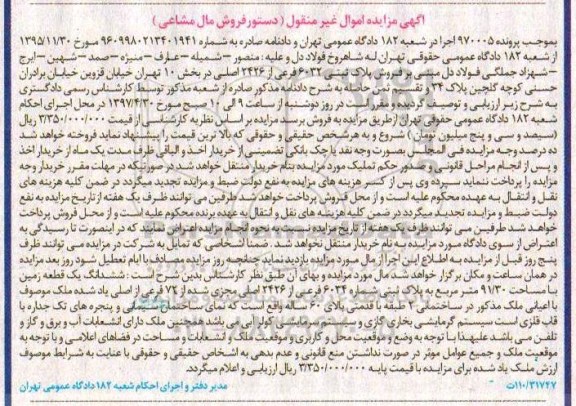 آگهی مزایده اموال غیر منقول ( دستور فروش مال مشاعی )
بموجب پرونده ۹۷۰۰۰۵ اجرا در شعبه ۱۸۲ دادگاه عمومی تهران و دادنامه صادره به شماره ۹۶۰۹۹۸۰۲۱۳۴۰۱۹۴۱ مورخ ۱۳۹۵/۱۱/۳۰
از شعبه ۱۸۲ دادگاه عمومی حقوقی تهران له شاهروخ فولاد دل و علیه : منصور – شمیله – عارف – منیژه – صمد – شهین – ایرج
– شهزاد جملگی فولاد دل مبنی بر فروش پلاک ثبتی ۶۰۳۲ فرعی از ۲۴۲۶ اصلی در بخش ۱۰ تهران خیابان قزوین خیابان برادران
حسنی کوچه گلچین پلاک ۳۴ ، تقسیم ثمن حاصله به شرح دادنامه مذکور صادره از شعبه مذکور توسط کارشناس رسمی دادگستری
به شرح زیر ارزیابی و توصیف گردیده و مقرر است در روز دوشنبه از ساعت ۹ الی ۱۰ صبح مورخ ۱۳۹۷/۴/۳۰ در محل اجرای احکام
شعبه ۱۸۲ دادگاه عمومی حقوقی تهران از طریق مزایده به فروش برسد مزایده بر اساس نظریه کارشناسی از قیمت ۳/۳۵۰/۰۰۰/۰۰۰ ریال
(سیصد و سی و پنج میلیون تومان ) شروع و به هر شخص حقیقی و حقوقی که بالاترین قیمت را پیشنهاد نماید فروخته خواهد شد
ده درصد وجه مزایده فی المجلس بصورت وجه نقد یا چک بانکی تضمینی از خریدار اخذ و الباقی ظرف مدت یک ماه از خریدار اخذ
و پس از انجام مراحل قانونی و صدور حکم تملیک مورد مزایده بنام خریدار منتقل خواهد شد در صورتیکه در مهلت مقرر خریدار وجه
مزایده را پرداخت ننماید سپرده وی پس از کسر هزینه های مزایده به نفع دولت ضبط و مزایده تجدید میگردد در ضمن کلیه هزینه های
نقل و انتقال به عهده محکوم علیه است و از محل فروش پرداخت خواهد شد طرفین می توانند ظرف یک هفته از تاریخ مزایده به نفع
دولت ضبط و مزایده تجدید میگردد در ضمن کلیه هزینه های نقل و انتقال به عهده برنده محکوم علیه است و از محل فروش پرداخت
خواهد شد طرفین می توانند ظرف یک هفته از تاریخ مزایده نسبت به نحوه انجام مزایده اعتراض نمایند که در اینصورت تا رسیدگی به
اعتراض از سوی دادگاه مورد مزایده به نام خریدار منتقل نخواهد شد . ضمنا اشخاصی که تمایل به شرکت در مزایده می توانند ظرف
پنج روز قبل از مزایده به اطلاع این اجرا از مال مورد مزایده بازدید نمایند چنانچه روز مزایده مصادف با ایام تعطیل شود روز بعد مزایده
در همان ساعت و مکان برگزار خواهد شد مال مورد مزایده و بهای آن طبق نظر کارشناس بدین شرح است : ششدانگ یک قطعه زمین
با مساحت ۹۱/۳۰ متر مربع به پلاک ثبتی شماره ۶۰۳۴ فرعی از ۲۴۲۶ اصلی مجزی شده از ۷۲ فرعی از اصلی یاد شده ملک موصوف
با اعیانی ملک مذکور در ساختمانی ۲ طبقه با قدمتی بالای ۶۰ ساله واقع است که نمای ساختمان و پنجره های تک جداره با
قاب فلزی است سیستم گرمایشی بخاری گازی و سیستم سرمایشی کولر آبی می باشد همچنین ملک دارای انشعابات آب و برق و گاز و
تلفن می باشد علیهذا با توجه به وضع و موقعیت محل و کاربری و موقعیت ملک ، انشعابات و مساحت در فضاهای اعلامی و با توجه به
موقعیت ملک و جمیع عوامل موثر در صورت نداشتن منع قانونی و عدم بدهی به اشخاص حقیقی و حقوقی با عنایت به شرایط موصوف
ارزش ملک یاد شده برای مزایده با قیمت پایه ۳/۳۵۰/۰۰۰/۰۰۰ ریال ارزیابی و اعلام میگردد.
۱۱۰/۳۱۷۲۷ت مدیر دفتر و اجرای احکام شعبه ۱۸۲ دادگاه عمومی تهران